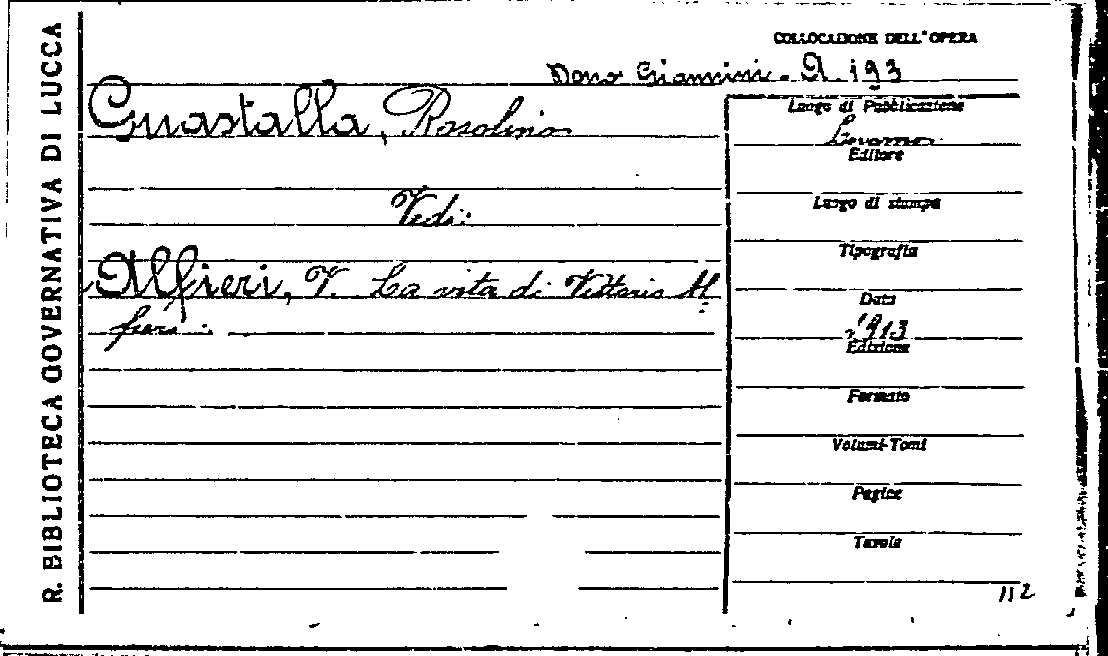 R. BIBLIOTECA GOVERNATIVA DI LUCCA
COLLOCAZIONE DELL'OPERA
Dono Giannini - A. 193
Guastalla, Rosolino
Vedi:
Alfieri, V. La vita di Vittorio Al=
fieri.
Luogo di Pubblicazione
Livorno
Editore
Luogo di stampa
Tipografia
Data
1913
Edizione
Formato
Volumi-Tomi
Pagine
Tavole
112